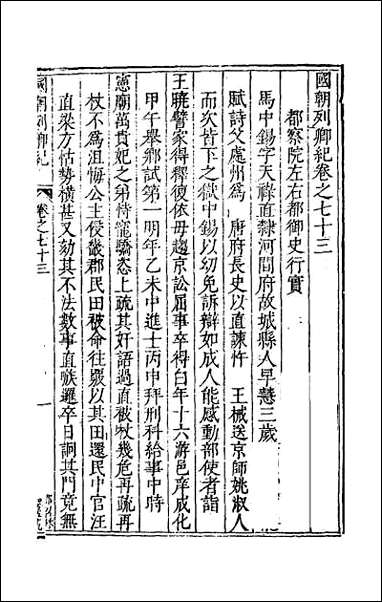 國朝列卿紀卷之七十三
都察院左右都御史行實
馬中錫字天祿直隸河間府故城縣人早慧三歲
賦詩父處州爲　唐府長史以直諫忤　王械送京師姚淑人
而次皆下之獄中錫以幼免訴辯如成人能感動部使者詣
王曉譬家得釋復依母趨京訟屈事卒得白年十六游邑庠成化
甲午舉鄉試第一明年乙未中進士丙申拜刑科給事中時
憲廟萬貴妃之弟恃寵驕恣上疏其奸語過直被杖幾危再疏再
杖不爲沮悔公主侵畿郡民田被命往覈以其田還民中官汪
直梁方怙勢橫甚又劾其不法數事直嗾邏卒日詗其門竟無
國朝列卿紀
卷之七十三
一